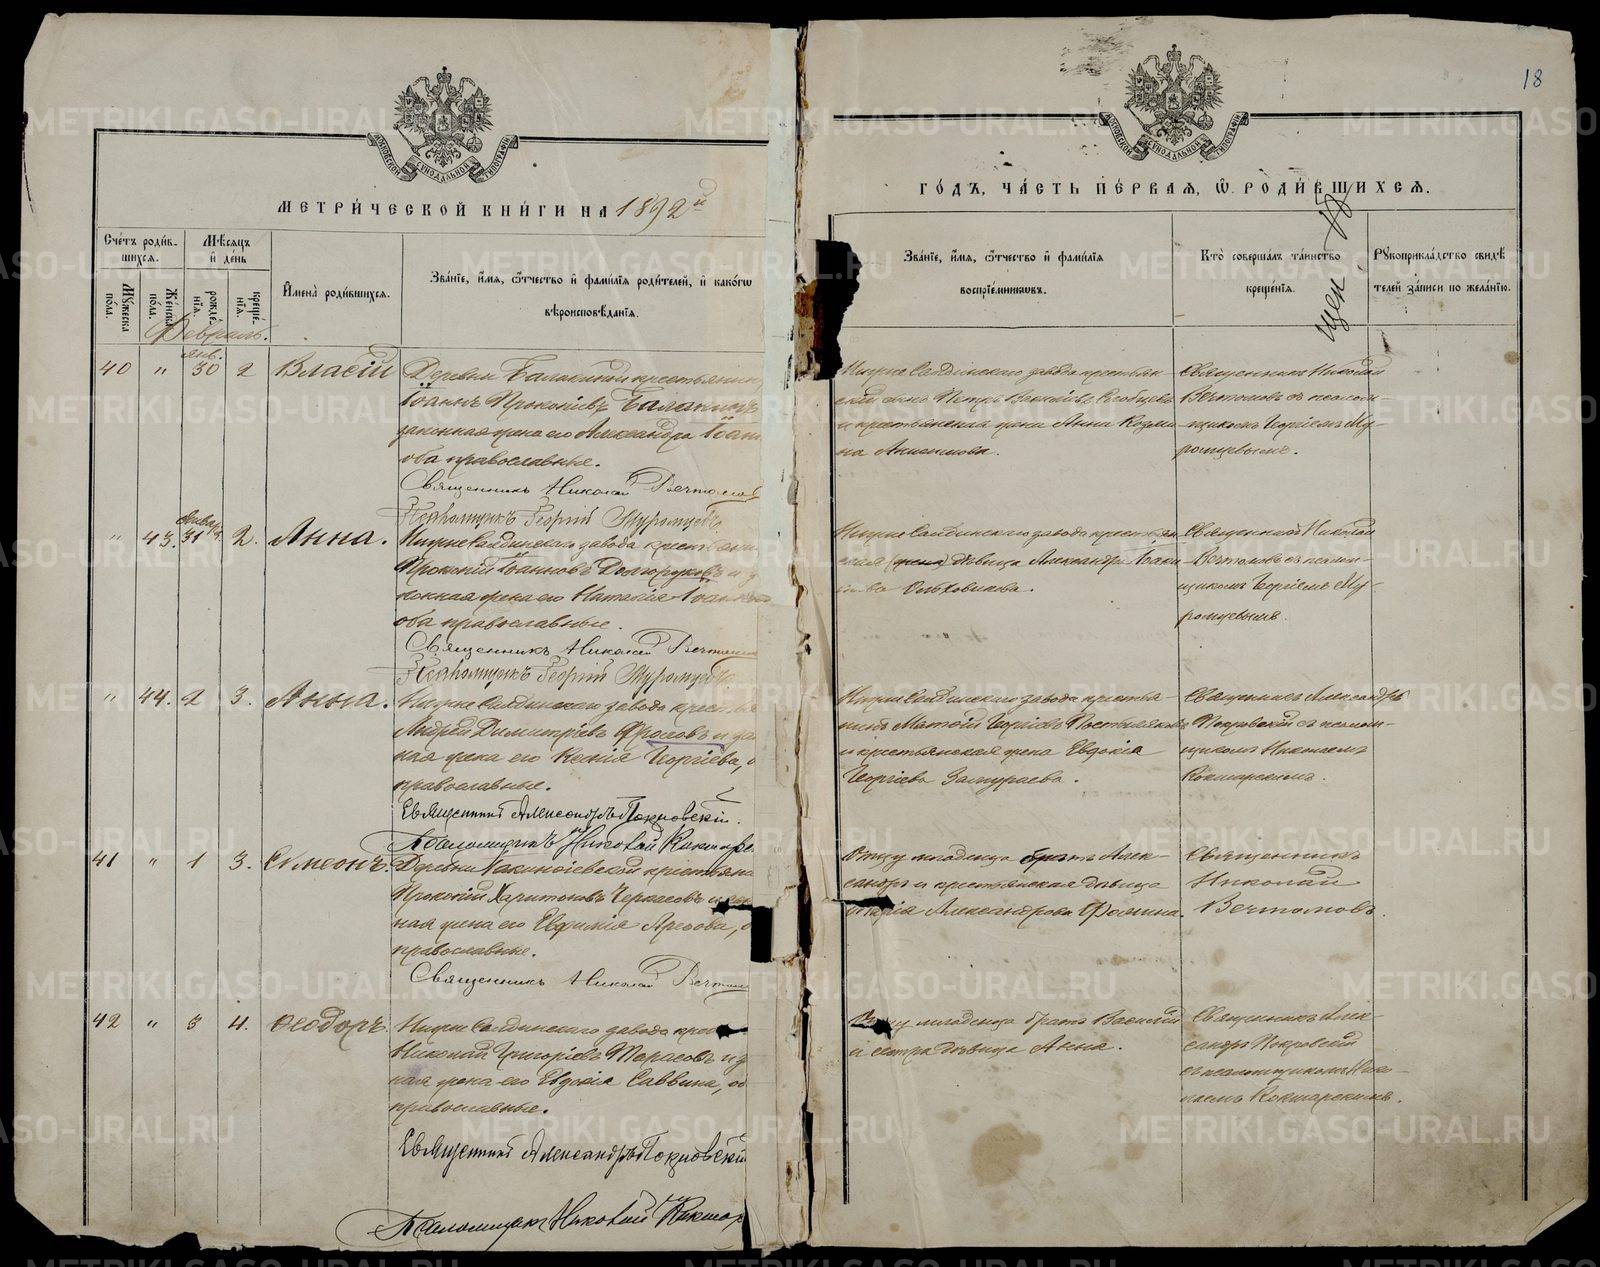 18
МОСКОВСКОЙ СѴНОДАЛЬНОЙ ТИПОГРАФІИ
МОСКОВСКОЙ СѴНОДАЛЬНОЙ ТИПОГРАФІИ
МЕТРИ́ЧЕСКОЙ КНИ́ГИ НА 1892й
ГО́ДЪ, ЧА́СТЬ ПЕ́РВАЯ, Ѡ РОДИ́ВШИХСЯ.
Сче́тъ роди́в-
шихся.
Мꙋ́жеска по́ла.
Же́нска по́ла.
Мѣ́сяцъ
и҆ де́нь
рожде́нїя.
креще́нїя.
И҆мена̀ роди́вшихся.
Зва́нїе, и҆́мя, ѻ҆́тчество и҆ фами́лїя роди́телей, и҆ како́гѡ
вѣроисповѣ́данїя.
Зва́нїе, и҆́мя, ѻ҆́тчество и҆ фами́лїя
воспрїе́мникѡвъ.
Кто̀ соверша́лъ та́инство
креще́нїя.
Рꙋкоприкла́дство свидѣ́
телей за́писи по жела́нїю.
Февраль.
40 " янв. 30 2 Власій
Деревни Балакиной крестьянин
Іоаннъ Прокопіевъ Балакинъ
законная жена его Александра Іоан
ова православные.
Священникъ Николай Вечтомов
Псаломщикъ Георгій Муромцевъ
Нижне Салдинскаго завода крестьян-
скій сынъ Петръ
и крестьянская жена Анна Козми
на Анисимова.
Священникъ Николай
Вечтомовъ съ псалом-
щикомъ Георгіемъ Му-
ромцевымъ.
" 43. Января 31 2. Анна.
Нижне Салдинскаго завода крестьянин
Прокопій Іоанновъ Долгоруковъ и за
конная жена его Наталія Іоанн
оба православные.
Священникъ Николай Вечтомов
Псаломщикъ Георгій Муромцевъ
Нижне Салдинскаго завода крестьян
ская (жена) дѣвица Александра Іоанн
Ольховикова.
Священникъ Николай
Вечтомовъ съ псалом-
щикомъ Георгіемъ Му-
ромцевымъ.
" 44. 2 3. Анна.
Нижне Салдинскаго завода крестья
Андрей Димитріевъ Фроловъ и зак
ная жена его Ксенія Георгіева, о
православные.
Священникъ Александръ Покровскій.
Псаломщикъ Николай Кокшаре
Нижне Салдинскаго завода крестья-
нинъ Матѳій Георгіевъ Постыляковъ
и крестьянская жена Евдокія
Георгіева Замураева.
Священникъ Александръ
Покровскій съ псалом-
щикомъ Николаемъ
Кокшарскимъ.
41 " 1 3. Симеонъ.
Деревни крестьяни
Прокопій Харитоновъ Черкасовъ и зак
ная жена его Евфимія Арефова, о
православные.
Священникъ Николай Вечтом
Отцу младенца братъ Алек-
сандръ и крестьянская дѣвица
Марія Александрова Фомина.
Священникъ
Николай
Вечтомовъ.
42 " 3 4. Ѳеодоръ.
Нижне Салдинскаго завода крес
Николай Григоріевъ Тарасовъ и з
ная жена его Евдокія Саввина, об
православные.
Священникъ Александръ Покровскій
Псаломщикъ Николай Кокшар
Отцу младенца братъ Василій
и сестра дѣвица Анна.
Священникъ Алек-
сандръ Покровскій
съ псаломщикомъ Нико-
лаемъ Кокшарскимъ.
METRIKI.GASO-URAL.RU